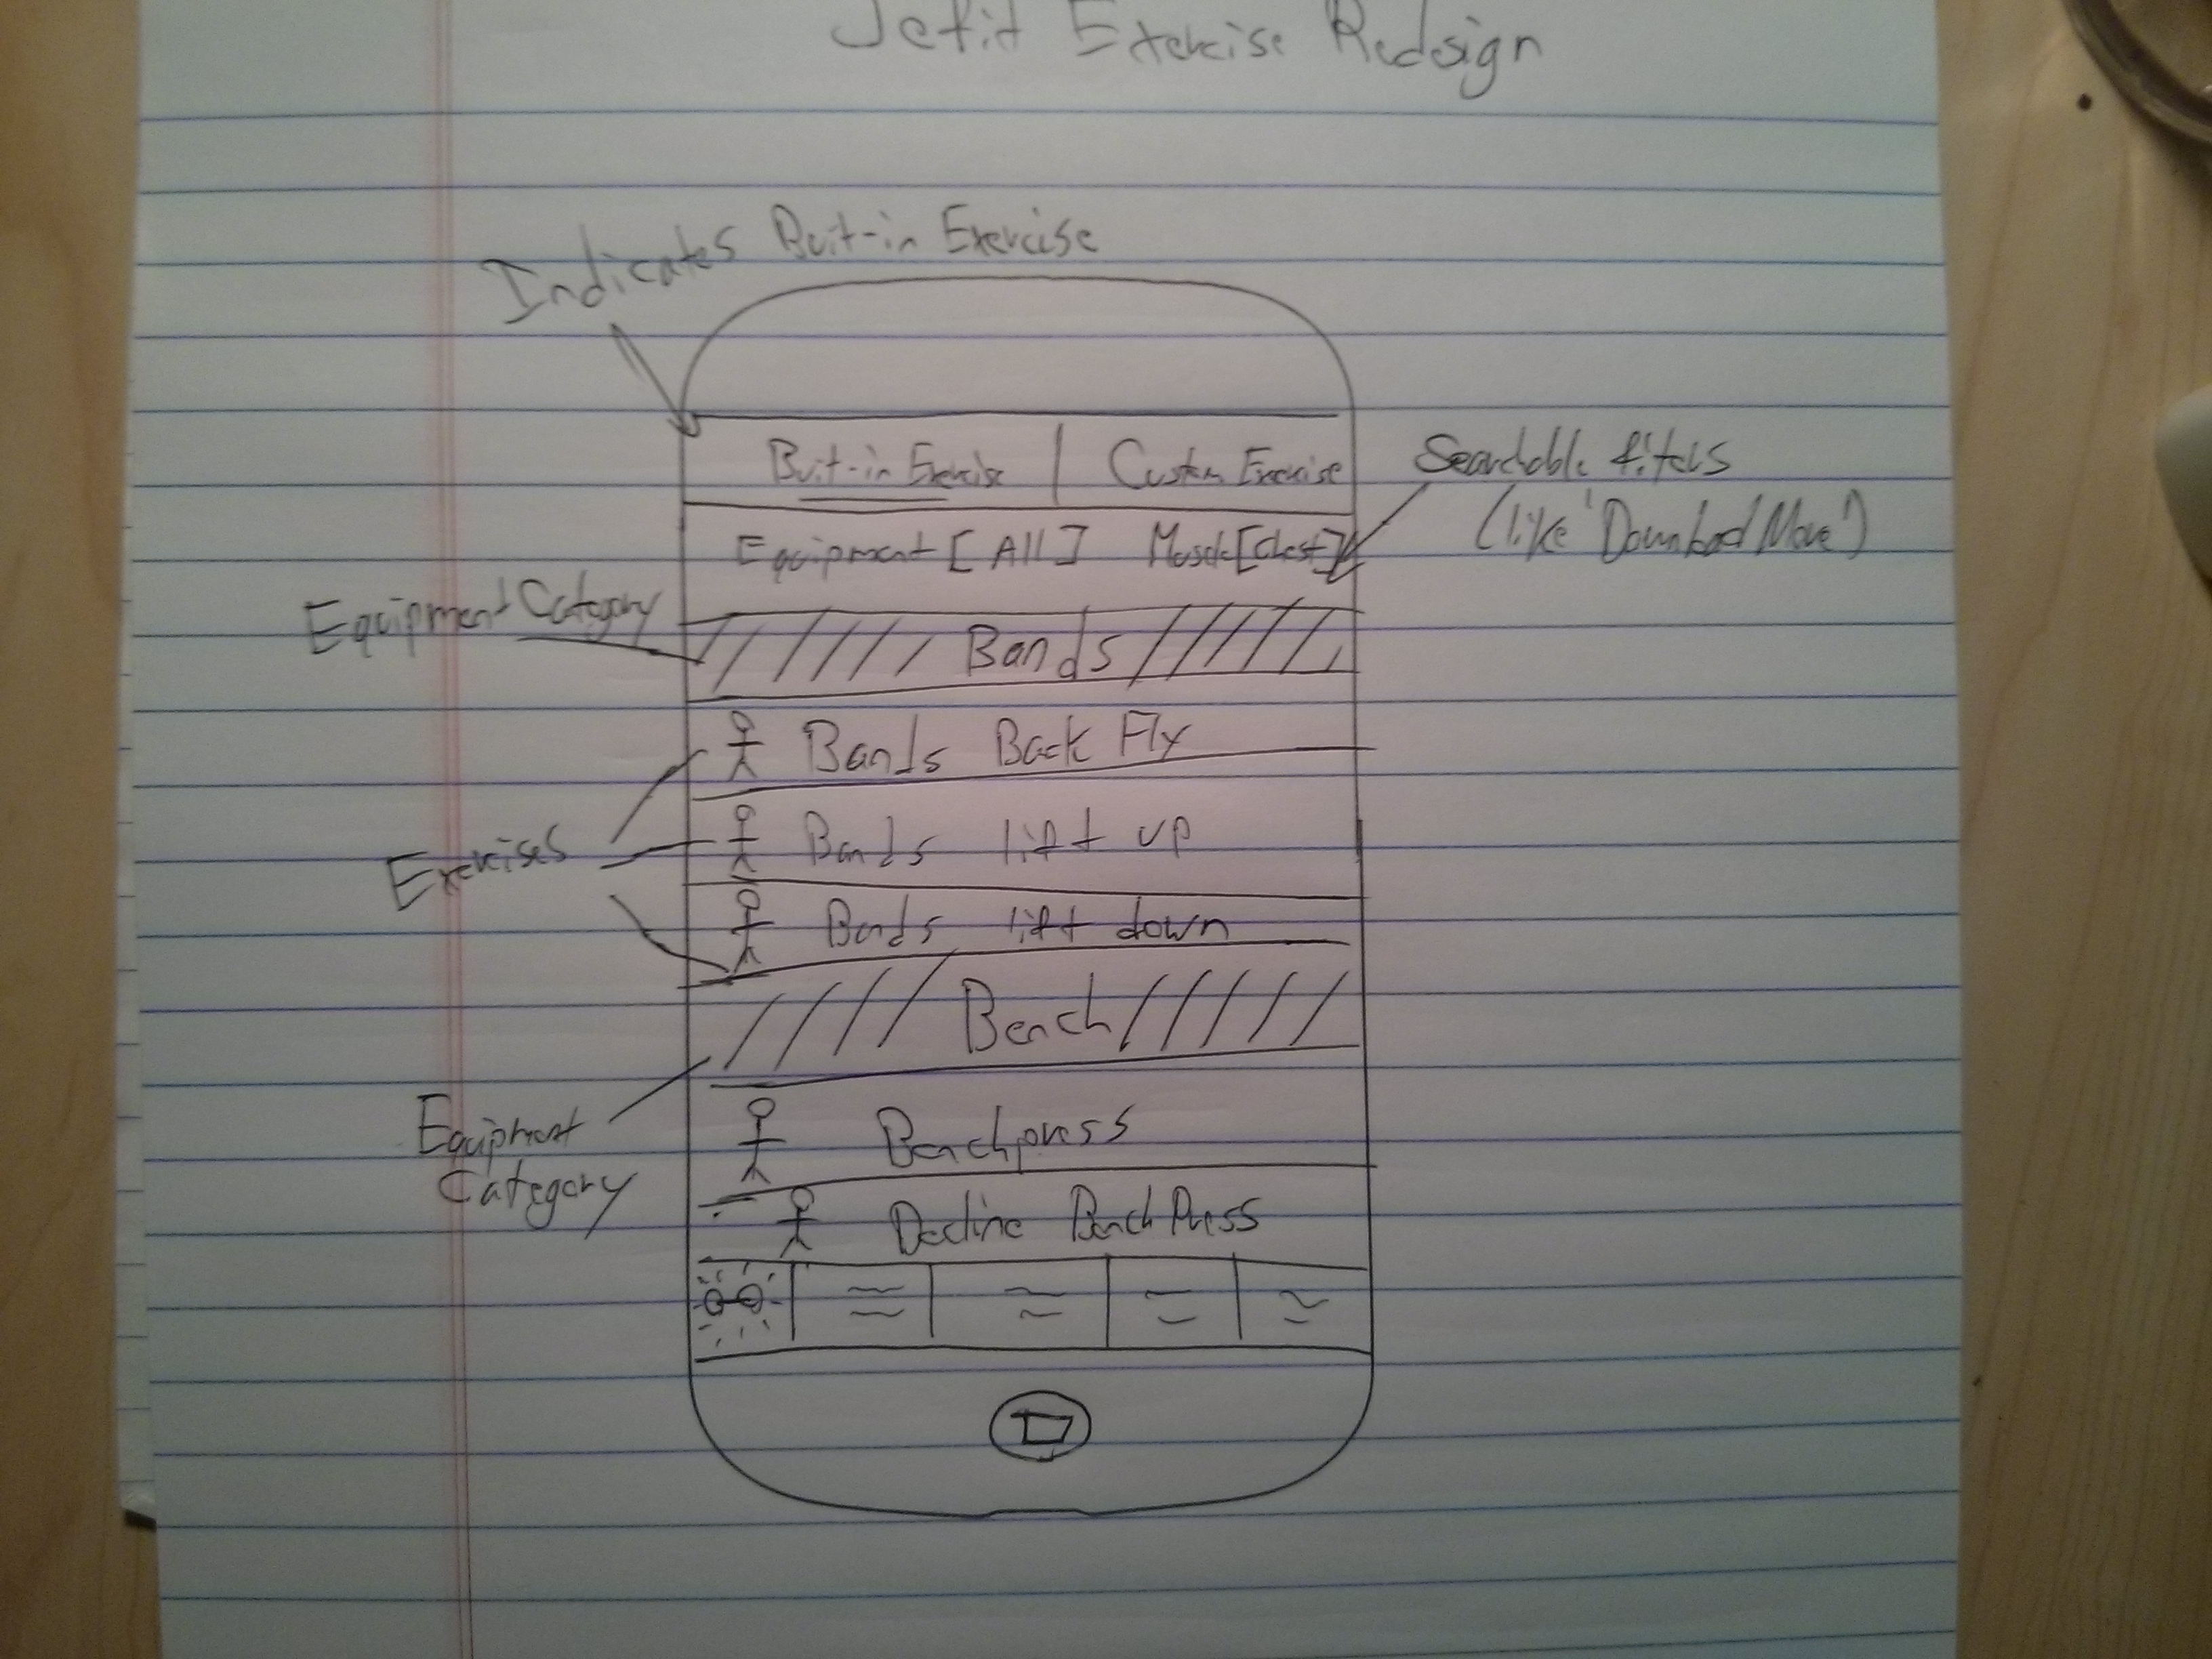 Jefit Exercise Redesign
Indicates Buit-in Exercise
Buit-in Exercise | Custom Exercise
Searchable filters
(like 'Download More')
Equipment [All] Muscle [Chest]
Equipment Category
Bands
Bands Back Fly
Bands lift up
Exercises
Bands lift down
Bench
Equipment
Category
Benchpress
Decline Bench Press